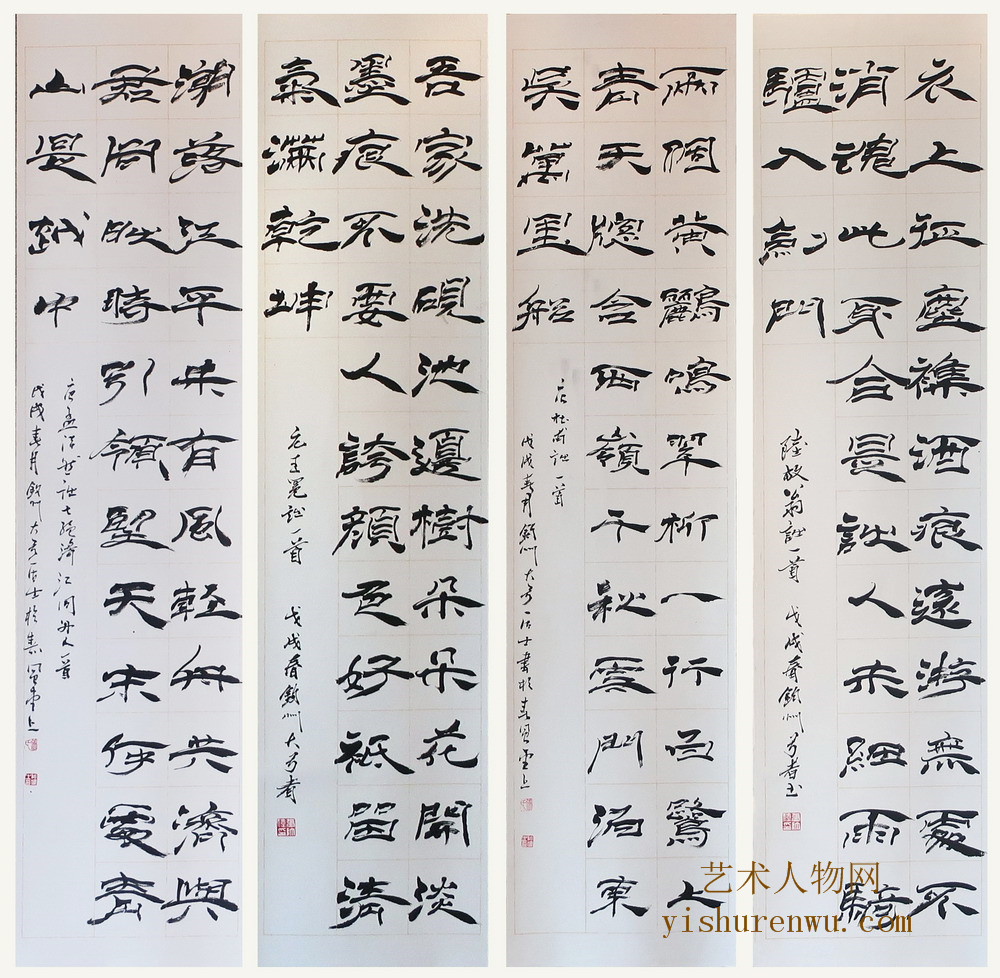 衣上征塵襍酒痕遠游無處不
消魂此身合是詩人未細雨騎
驢入劍門
陸放翁詩一首 戊戌春
兩個黃鸝鳴翠柳一行白鷺上
青天窓含西嶺千秋雪門泊東
吳萬里船
唐杜甫詩一首
戊戌春月 大方一居士書於春風堂上
吾家洗硯池邊樹朵朵花開淡
墨痕不要人誇顏色好祇留清
氣滿乾坤
元王冕詩一首 戊戌春 大方者
潮落江平未有風輕舟共濟與
君同時時引領望天末何處青
山是越中
唐孟浩然詩七絕濟江問舟人一首
戊戌春月 大方一居士於春風堂上
艺术人物网
yishurenwu.com